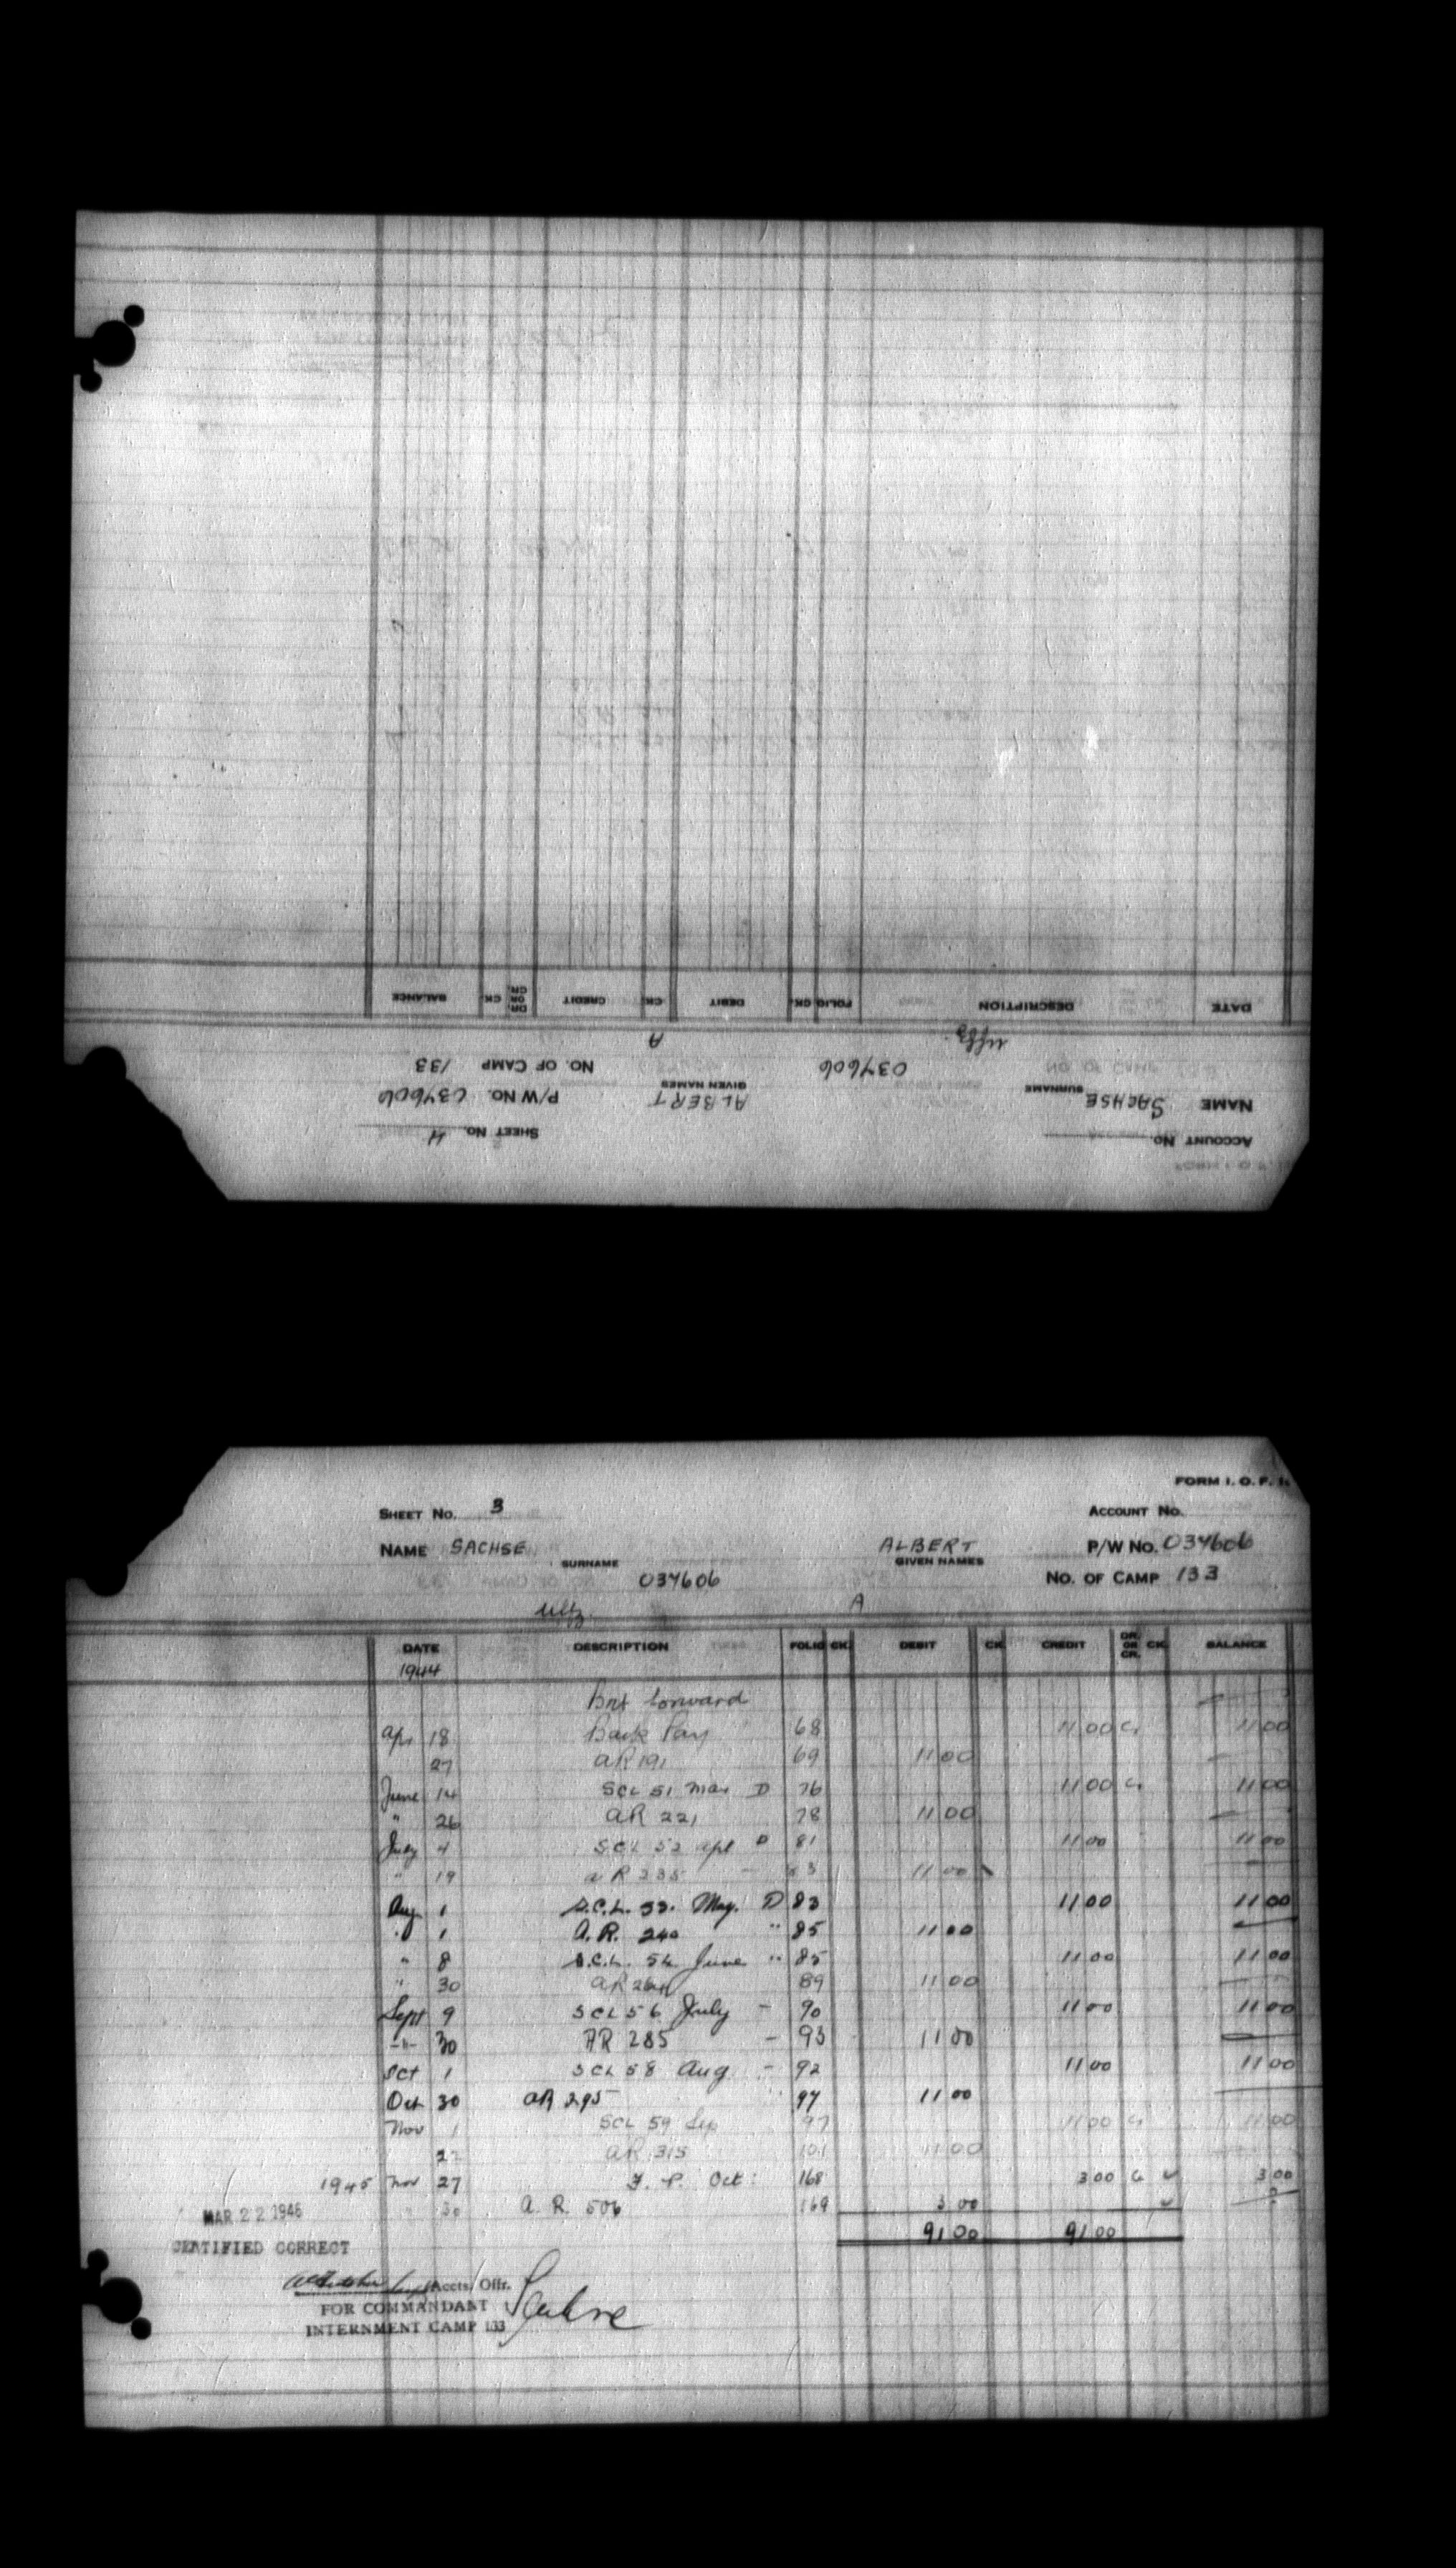 FORM I. O. F.
ACCOUNT No.
SHEET No. 4
NAME SACHSE ALBERT P/W No. 034606
SURNAME GIVEN NAMES
034606 NO. OF CAMP 133
Uffz. A
DATE DESCRIPTION FOLIO CK. DEBIT CK. CREDIT DR. OR CR. CK. BALANCE
FORM I. O. F.
SHEET No. 3 ACCOUNT No.
NAME SACHSE ALBERT P/W No. 034606
SURNAME GIVEN NAMES
034606 NO. OF CAMP 133
Uffz. A
DATE DESCRIPTION FOLIO CK. DEBIT CK. CREDIT DR. OR CR. CK. BALANCE
1944
Brt forward
Apr 18 Back Pay 68 11 00 Cr 11 00
27 AR 191 69 11 00
June 14 SCL 51 Mar D 76 11 00 Cr 11 00
" 26 AR 221 78 11 00
July 4 SCL 52 Apl D 81 11 00 11 00
" 19 AR 235 - 83 11 00
Aug 1 S.C.L. 53. May. D 83 11 00 11 00
" 1 A.R. 240 " 85 11 00
" 8 S.C.L. 54 June " 85 11 00 11 00
" 30 AR 264 89 11 00
Sept 9 SCL 56 July - 90 11 00 11 00
-"- 30 AR 285 - 93 11 00
Oct 1 SCL 58 Aug - 92 11 00 11 00
Oct 30 AR 295 " 97 11 00
Nov 1 SCL 59 Sep 97 11 00 Cr 11 00
27 AR 315 101 11 00
1945 Nov 27 F. P. Oct: 168 3 00 Cr 3 00
30 A. R. 506 169 3 00
91 00 91 00
MAR 22 1946
CERTIFIED CORRECT
Accts. Offr.
FOR COMMANDANT
INTERNMENT CAMP 133
Sachse